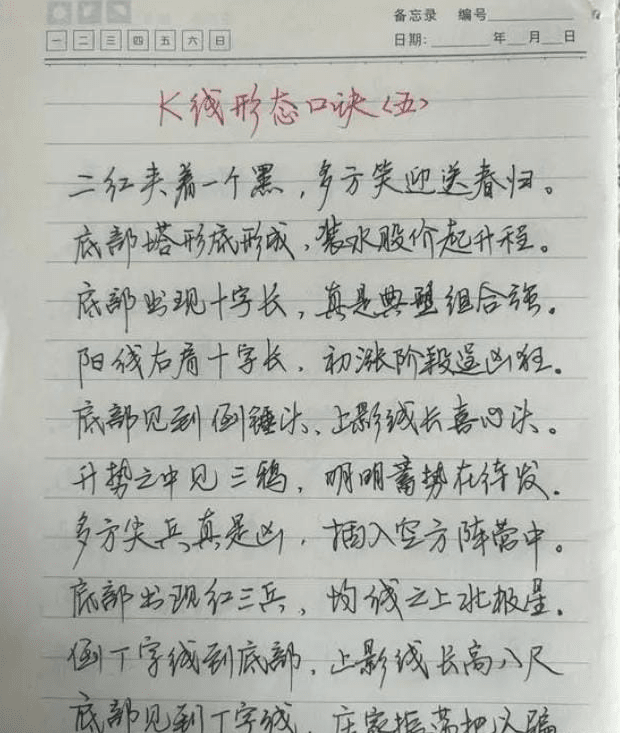 备忘录 编号
一 二 三 四 五 六 日
日期: 年 月 日
K线形态口诀〈五〉
二红夹着一个黑，多方笑迎送春归。
底部塔形底形成，装水股价起升程。
底部出现十字长，真是典型组合强。
阳线右肩十字长，初涨阶段逞凶狂。
底部见到倒锤头、上影线长喜心头。
升势之中见三鸦，明明蓄势在待发．
多方尖兵真是凶，插入空方阵营中。
底部出现红三兵，均线之上北极星．
倒丁字线到底部，上影线长高八尺
底部见到丁字线 庄家振荡把人骗